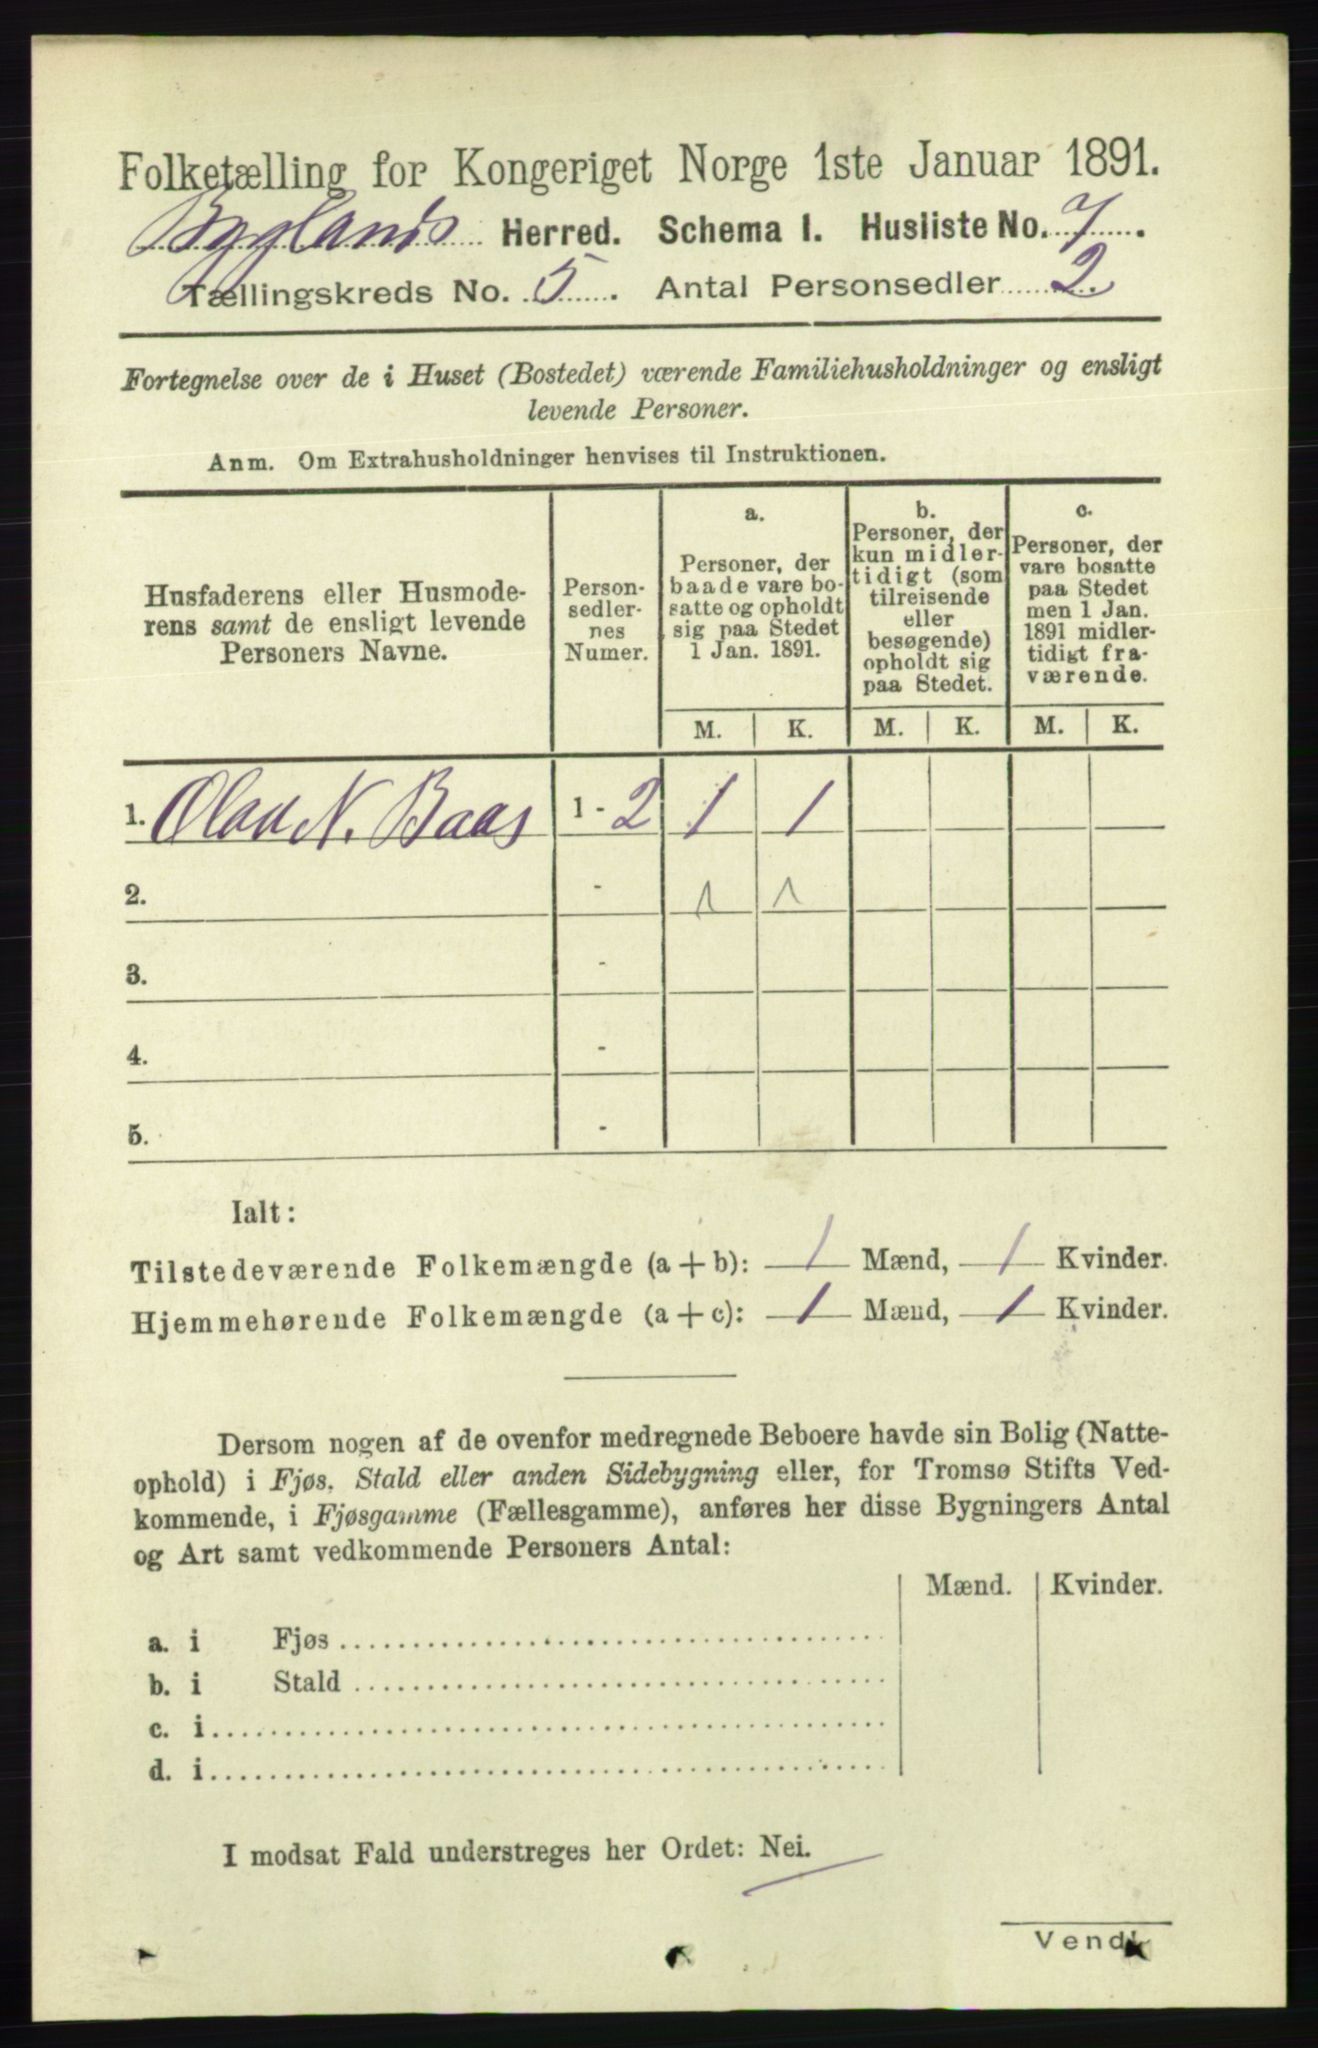 Folketælling for Kongeriget Norge 1ste Januar 1891.
Byglands Herred. Schema I. Husliste No. 7.
Tællingskreds No. 5. Antal Personsedler 2.
Fortegnelse over de i Huset (Bostedet) værende Familiehusholdninger og ensligt
levende Personer.
Anm. Om Extrahusholdninger henvises til Instruktionen.
Husfaderens eller Husmode-
rens samt de ensligt levende
Personers Navne.
Person-
sedler-
nes
Numer.
a.
Personer, der
baade vare bo-
satte og opholdt
sig paa Stedet
1 Jan. 1891.
b.
Personer, der
kun midler-
tidigt (som
tilreisende
eller
besøgende)
opholdt sig
paa Stedet.
c.
Personer, der
vare bosatte
paa Stedet
men 1 Jan.
1891 midler-
tidigt fra-
værende.
M. K. M. K. M. K.
1. Olav N. Baas 1 - 2 1 1
2. - 1 1
3. -
4. -
5. -
Ialt:
Tilstedeværende Folkemængde (a + b): 1 Mænd, 1 Kvinder.
Hjemmehørende Folkemængde (a + c): 1 Mænd, 1 Kvinder.
Dersom nogen af de ovenfor medregnede Beboere havde sin Bolig (Natte-
ophold) i Fjøs, Stald eller anden Sidebygning eller, for Tromsø Stifts Ved-
kommende, i Fjøsgamme (Fællesgamme), anføres her disse Bygningers Antal
og Art samt vedkommende Personers Antal:
Mænd. Kvinder.
a. i Fjøs
b. i Stald
c. i
d. i
I modsat Fald understreges her Ordet: Nei.
Vend!